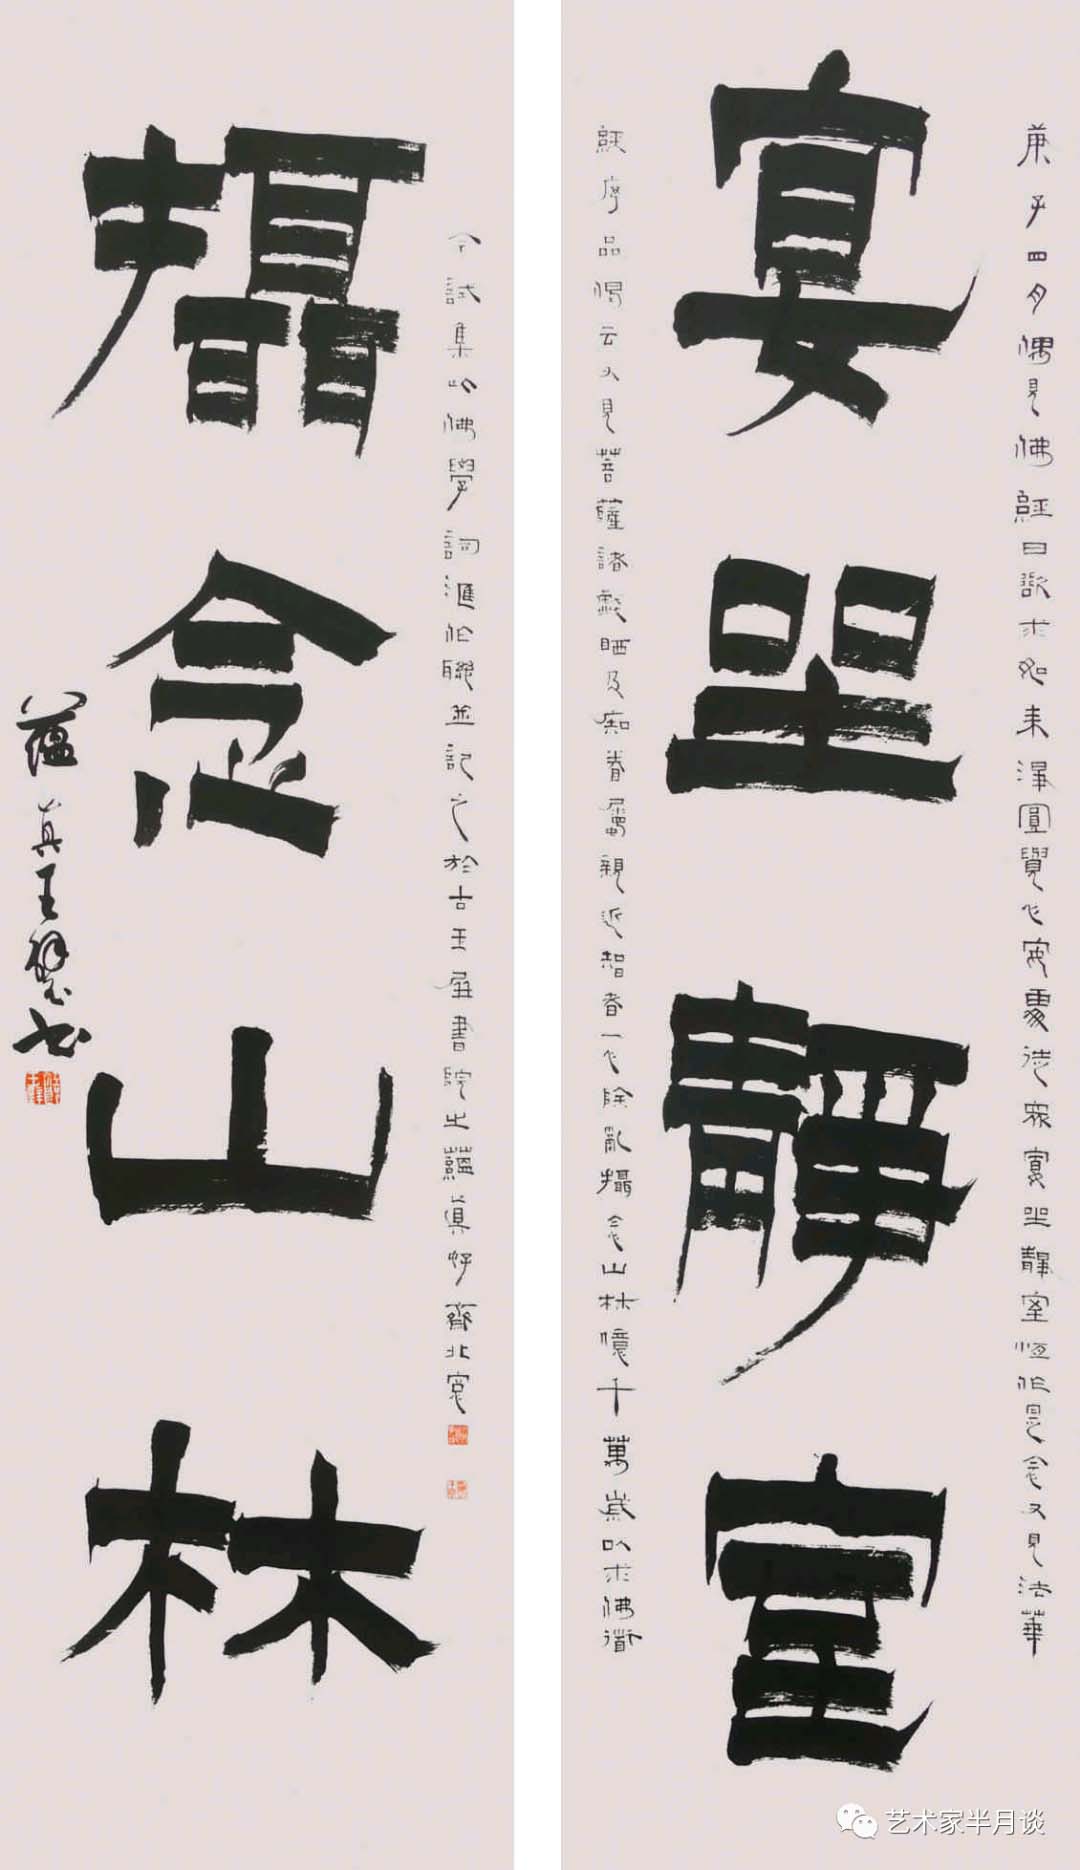 宴坐靜室
庚子四月偶見佛經曰欲求如來淨圓覺心安處徒衆宴坐靜室恆作是念又見法華
經序品偈云又見菩薩諸戲哂及痴眷屬親近智者一心除亂攝念山林憶千萬歲以求佛道
攝念山林
今試集此佛學詞滙作聯並記之於古玉屏書院之蘊真好齊北窗
蘊真王
艺术家半月谈